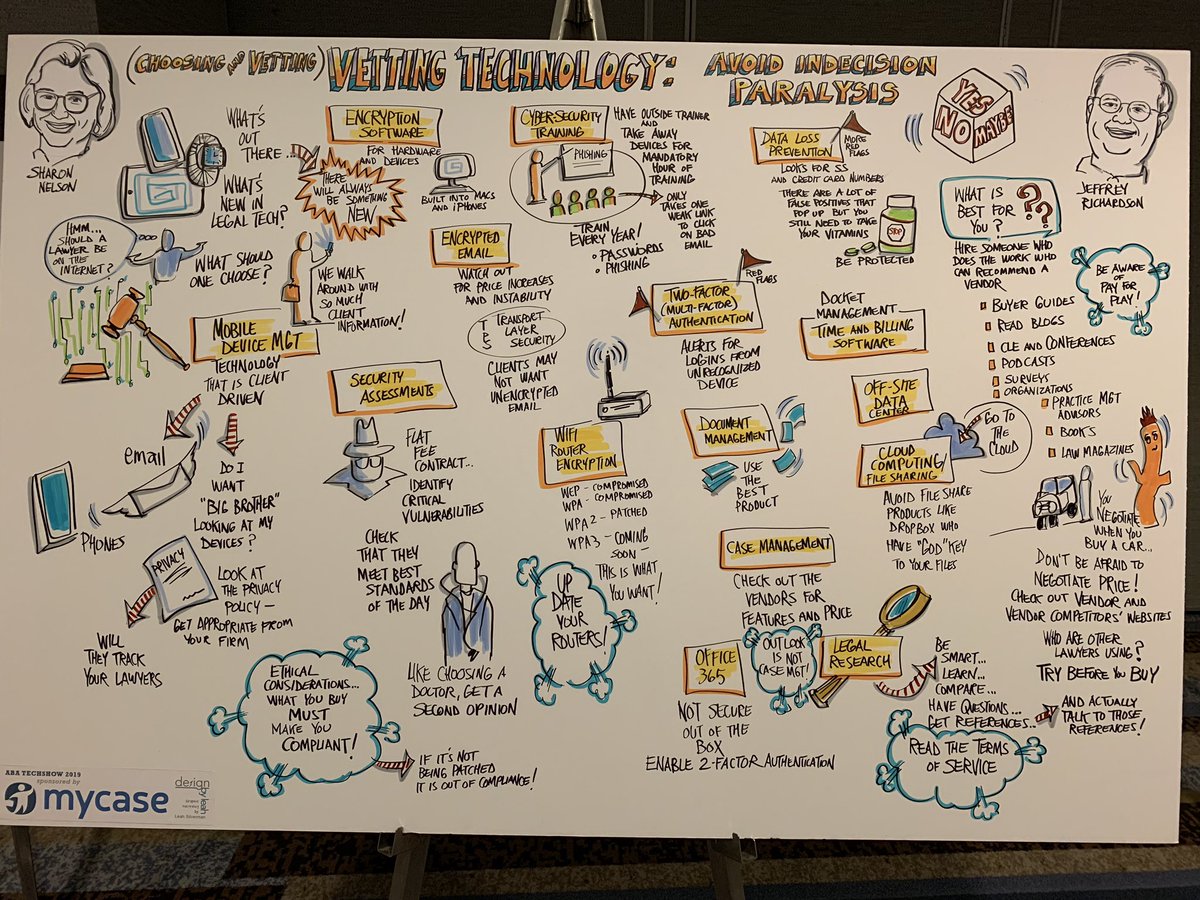 (CHOOSING AND VETTING) VETTING TECHNOLOGY: AVOID INDECISION
PARALYSIS
YES
NO
MAYBE
SHARON
NELSON
JEFFREY
RICHARDSON
WHAT'S
OUT
THERE...
WHAT'S
NEW IN
LEGAL TECH?
THERE
WILL ALWAYS
BE SOMETHING
NEW
HMM...
SHOULD A
LAWYER BE
ON THE
INTERNET?
WHAT SHOULD
ONE CHOOSE?
WE WALK
AROUND WITH
SO MUCH
CLIENT
INFORMATION!
MOBILE
DEVICE MGT
TECHNOLOGY
THAT IS CLIENT
DRIVEN
email
PHONES
DO I
WANT
"BIG BROTHER"
LOOKING AT MY
DEVICES?
PRIVACY
LOOK AT
THE PRIVACY
POLICY —
GET APPROPRIATE FROM
YOUR FIRM
WILL
THEY TRACK
YOUR LAWYERS
ETHICAL
CONSIDERATIONS...
WHAT YOU BUY
MUST
MAKE YOU
COMPLIANT!
IF IT'S NOT
BEING PATCHED
IT IS OUT OF COMPLIANCE!
ENCRYPTION
SOFTWARE
FOR HARDWARE
AND DEVICES
BUILT INTO MACS
AND IPHONES
ENCRYPTED
EMAIL
WATCH OUT
FOR PRICE INCREASES
AND INSTABILITY
TRANSPORT
LAYER
SECURITY
T
L
S
CLIENTS MAY
NOT WANT
UNENCRYPTED
EMAIL
SECURITY
ASSESSMENTS
FLAT
FEE
CONTRACT...
IDENTIFY
CRITICAL
VULNERABILITIES
CHECK
THAT THEY
MEET BEST
STANDARDS
OF THE DAY
LIKE CHOOSING A
DOCTOR, GET A
SECOND OPINION
CYBER-SECURITY
TRAINING
PHISHING
HAVE OUTSIDE TRAINER
AND
TAKE AWAY
DEVICES FOR
MANDATORY
HOUR OF
TRAINING
ONLY
TAKES ONE
WEAK LINK
TO CLICK
ON BAD
EMAIL
TRAIN
EVERY YEAR!
• PASSWORDS
• PHISHING
WIFI
ROUTER
ENCRYPTION
WEP - COMPROMISED
WPA - COMPROMISED
WPA2 - PATCHED
WPA3 - COMING
SOON —
THIS IS WHAT
YOU WANT!
UP
DATE
YOUR
ROUTERS!
DATA LOSS
PREVENTION
MORE
RED
FLAGS
LOOKS FOR SS
AND CREDIT CARD NUMBERS
THERE ARE A LOT OF
FALSE POSITIVES THAT
POP UP BUT YOU
STILL NEED TO TAKE
YOUR VITAMINS
STOP
BE PROTECTED
TWO-FACTOR
(MULTI-FACTOR)
AUTHENTICATION
RED
FLAGS
ALERTS FOR
LOGINS FROM
UNRECOGNIZED
DEVICE
DOCKET
MANAGEMENT
TIME AND BILLING
SOFTWARE
DOCUMENT
MANAGEMENT
USE
THE BEST
PRODUCT
OFF-SITE
DATA
CENTER
GO TO
THE
CLOUD
CLOUD
COMPUTING/
FILE SHARING
AVOID FILE SHARE
PRODUCTS LIKE
DROPBOX WHO
HAVE "GOD" KEY
TO YOUR FILES
CASE MANAGEMENT
CHECK OUT THE
VENDORS FOR
FEATURES AND PRICE
OFFICE
365
OUTLOOK
IS NOT
CASE MGT!
NOT SECURE
OUT OF THE
BOX
ENABLE 2-FACTOR AUTHENTICATION
LEGAL
RESEARCH
BE
SMART...
LEARN...
COMPARE...
HAVE QUESTIONS...
GET REFERENCES...
AND ACTUALLY
TALK TO THOSE
REFERENCES!
READ THE TERMS
OF SERVICE
WHAT IS
BEST FOR
YOU?
???
HIRE SOMEONE WHO
DOES THE WORK WHO
CAN RECOMMEND A
VENDOR
BE AWARE
OF
PAY FOR
PLAY!
BUYER GUIDES
READ BLOGS
CLE AND CONFERENCES
PODCASTS
SURVEYS
ORGANIZATIONS
PRACTICE MGT
ADVISORS
BOOKS
LAW MAGAZINES
YOU
NEGOTIATE
WHEN YOU
BUY A CAR...
DON'T BE AFRAID TO
NEGOTIATE PRICE!
CHECK OUT VENDOR AND
VENDOR COMPETITORS' WEBSITES
WHO ARE OTHER
LAWYERS USING?
TRY BEFORE YOU BUY
ABA TECHSHOW 2019
sponsored by
mycase
derign
by leah
Leah Silverman